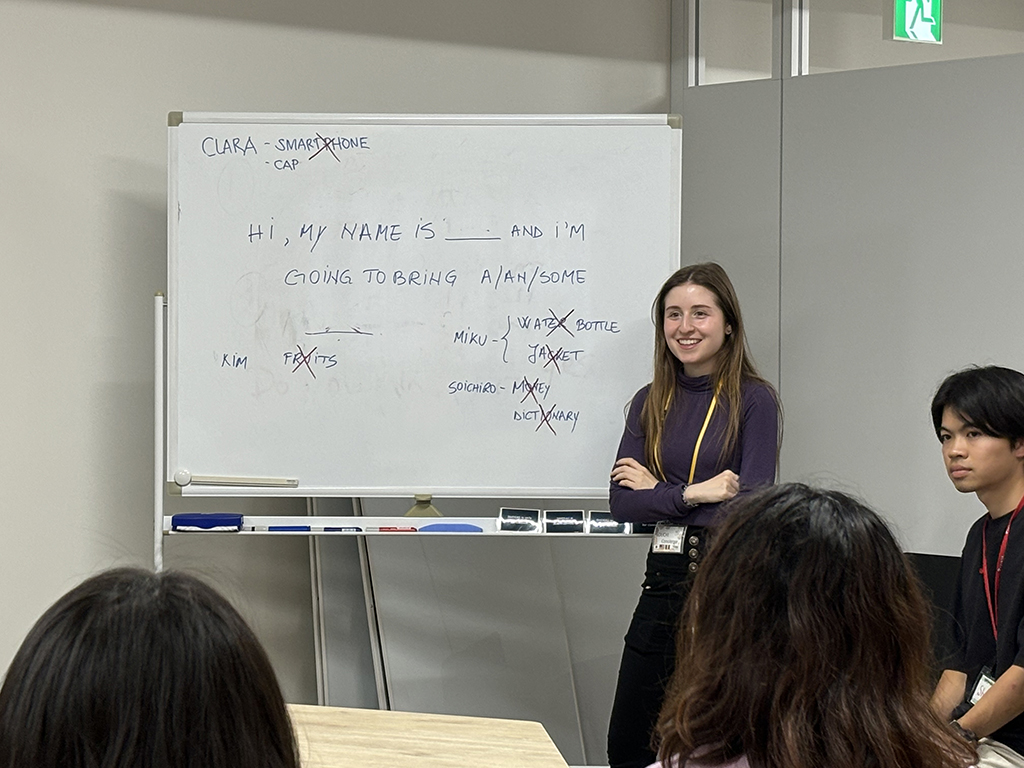 CLARA - SMARTPHONE
- CAP
Hi, MY NAME iS ____ AND i'M
GOING TO BRING A/AN/SOME
____
MiKU - { WATER BOTTLE
JACKET
KiM FRUiTS
SOiCHiRO - MONEY
DICTIONARY